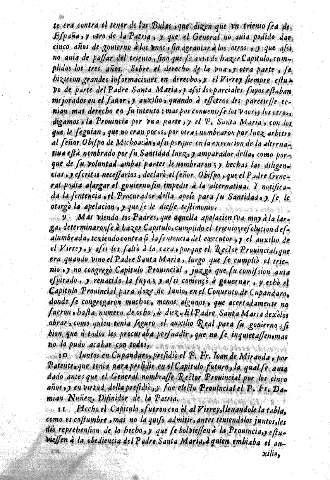 to era contra el tenor de las Bulas, que dizen que vn trienio sea de
España, y otro de la Patria, y que el General no auia podido dar
cinco años de gouierno à los vnos, sin agrauiar à los otros, y que assi
no auia de passar del trienio, sino que se auia de hazer Capitulo, cum-
plidos los tres años. Sobre el derecho de la vna, y otra parte, se
hizieron grandes informaciones en derecho, y el Virrey siempre estu-
vo de parte del Padre Santa Maria, y assi los parciales suyos estaban
mejorados en el fauor, y auxilio, quando à estotros les pareciesse te-
nian mas derecho
digamos à la Prouincia por vna parte, y el P. Santa Maria, con los
que le seguian, que no eran pocos, por otra nombraron por juez arbitro
al señor Obispo de Michoacàn, assi porque en la execucion de la alterna-
tiua està nombrado por su Santidad juez, y amparador della, como por-
que de su voluntad ambas partes le nombraron, y hechas las diligen-
cias, y escritos necessarios, declarò el señor Obispo, que el Padre Gene-
ral podia alargar el gouierno sin impedir à la alternatiua: y notifica-
da la sentencia, el Procurador della apelò para su Santidad, y se le
otorgò la apelacion, y que se le diesse testimonio.
9 Mas viendo los Padres, que aquella apelacion iva muy à la lar-
ga, determinaron se hazer Capitulo, cumplido el trienio, resolucion de-
alumbrada, teniendo contra si la sentencia del executor, y el auxilio de
el Virrey, y assi les saliò à la cara, porque el Rector Prouincial, que
era quando vino el Padre Santa Maria, luego que se cumpliò el trie-
nio, y no congregò Capitulo Prouincial, juzgò que su comission auia
espirado, y renaciò la suya, y assi començò à gouernar, y echò el
Capitulo Prouincial para doze de Iunio, en el Conuento de Cupandaro,
donde se congregaron muchos, menos algunos, que acertadamente no
fueron, hasta numero de ocho, à diez. El Padre Santa Maria dexòlos
obrar, como quien tenia seguro el auxilio Real para su gouierno: si
bien, que à todos les procuraba persuadir, que no se inquietassen, mas
no lo pudo acabar con todos.
10 Iuntos en Cupandaro, presidiò el P. Fr. Iuan de Miranda, por
Patente, que tenia para presidir en el Capitulo futuro, la qual se auia
dado antes que el General nombrasse Rector Prouincial por los cinco
años, y en virtud della presidiò, y fue electo Prouincial el P. Fr. Da-
mian Nuñez, Difinidor de la Patria.
11 Hecho el Capitulo, fueron con èl al Virrey, lleuandole la tabla,
como es costumbre, mas no la quiso admitir, antes teniendolos juntos, les
diò reprehension de lo hecho, y que se boluiessen à la Prouincia, y estu-
uiessen à la obediencia del Padre Santa Maria, à quien embiaba el au-
xilio,